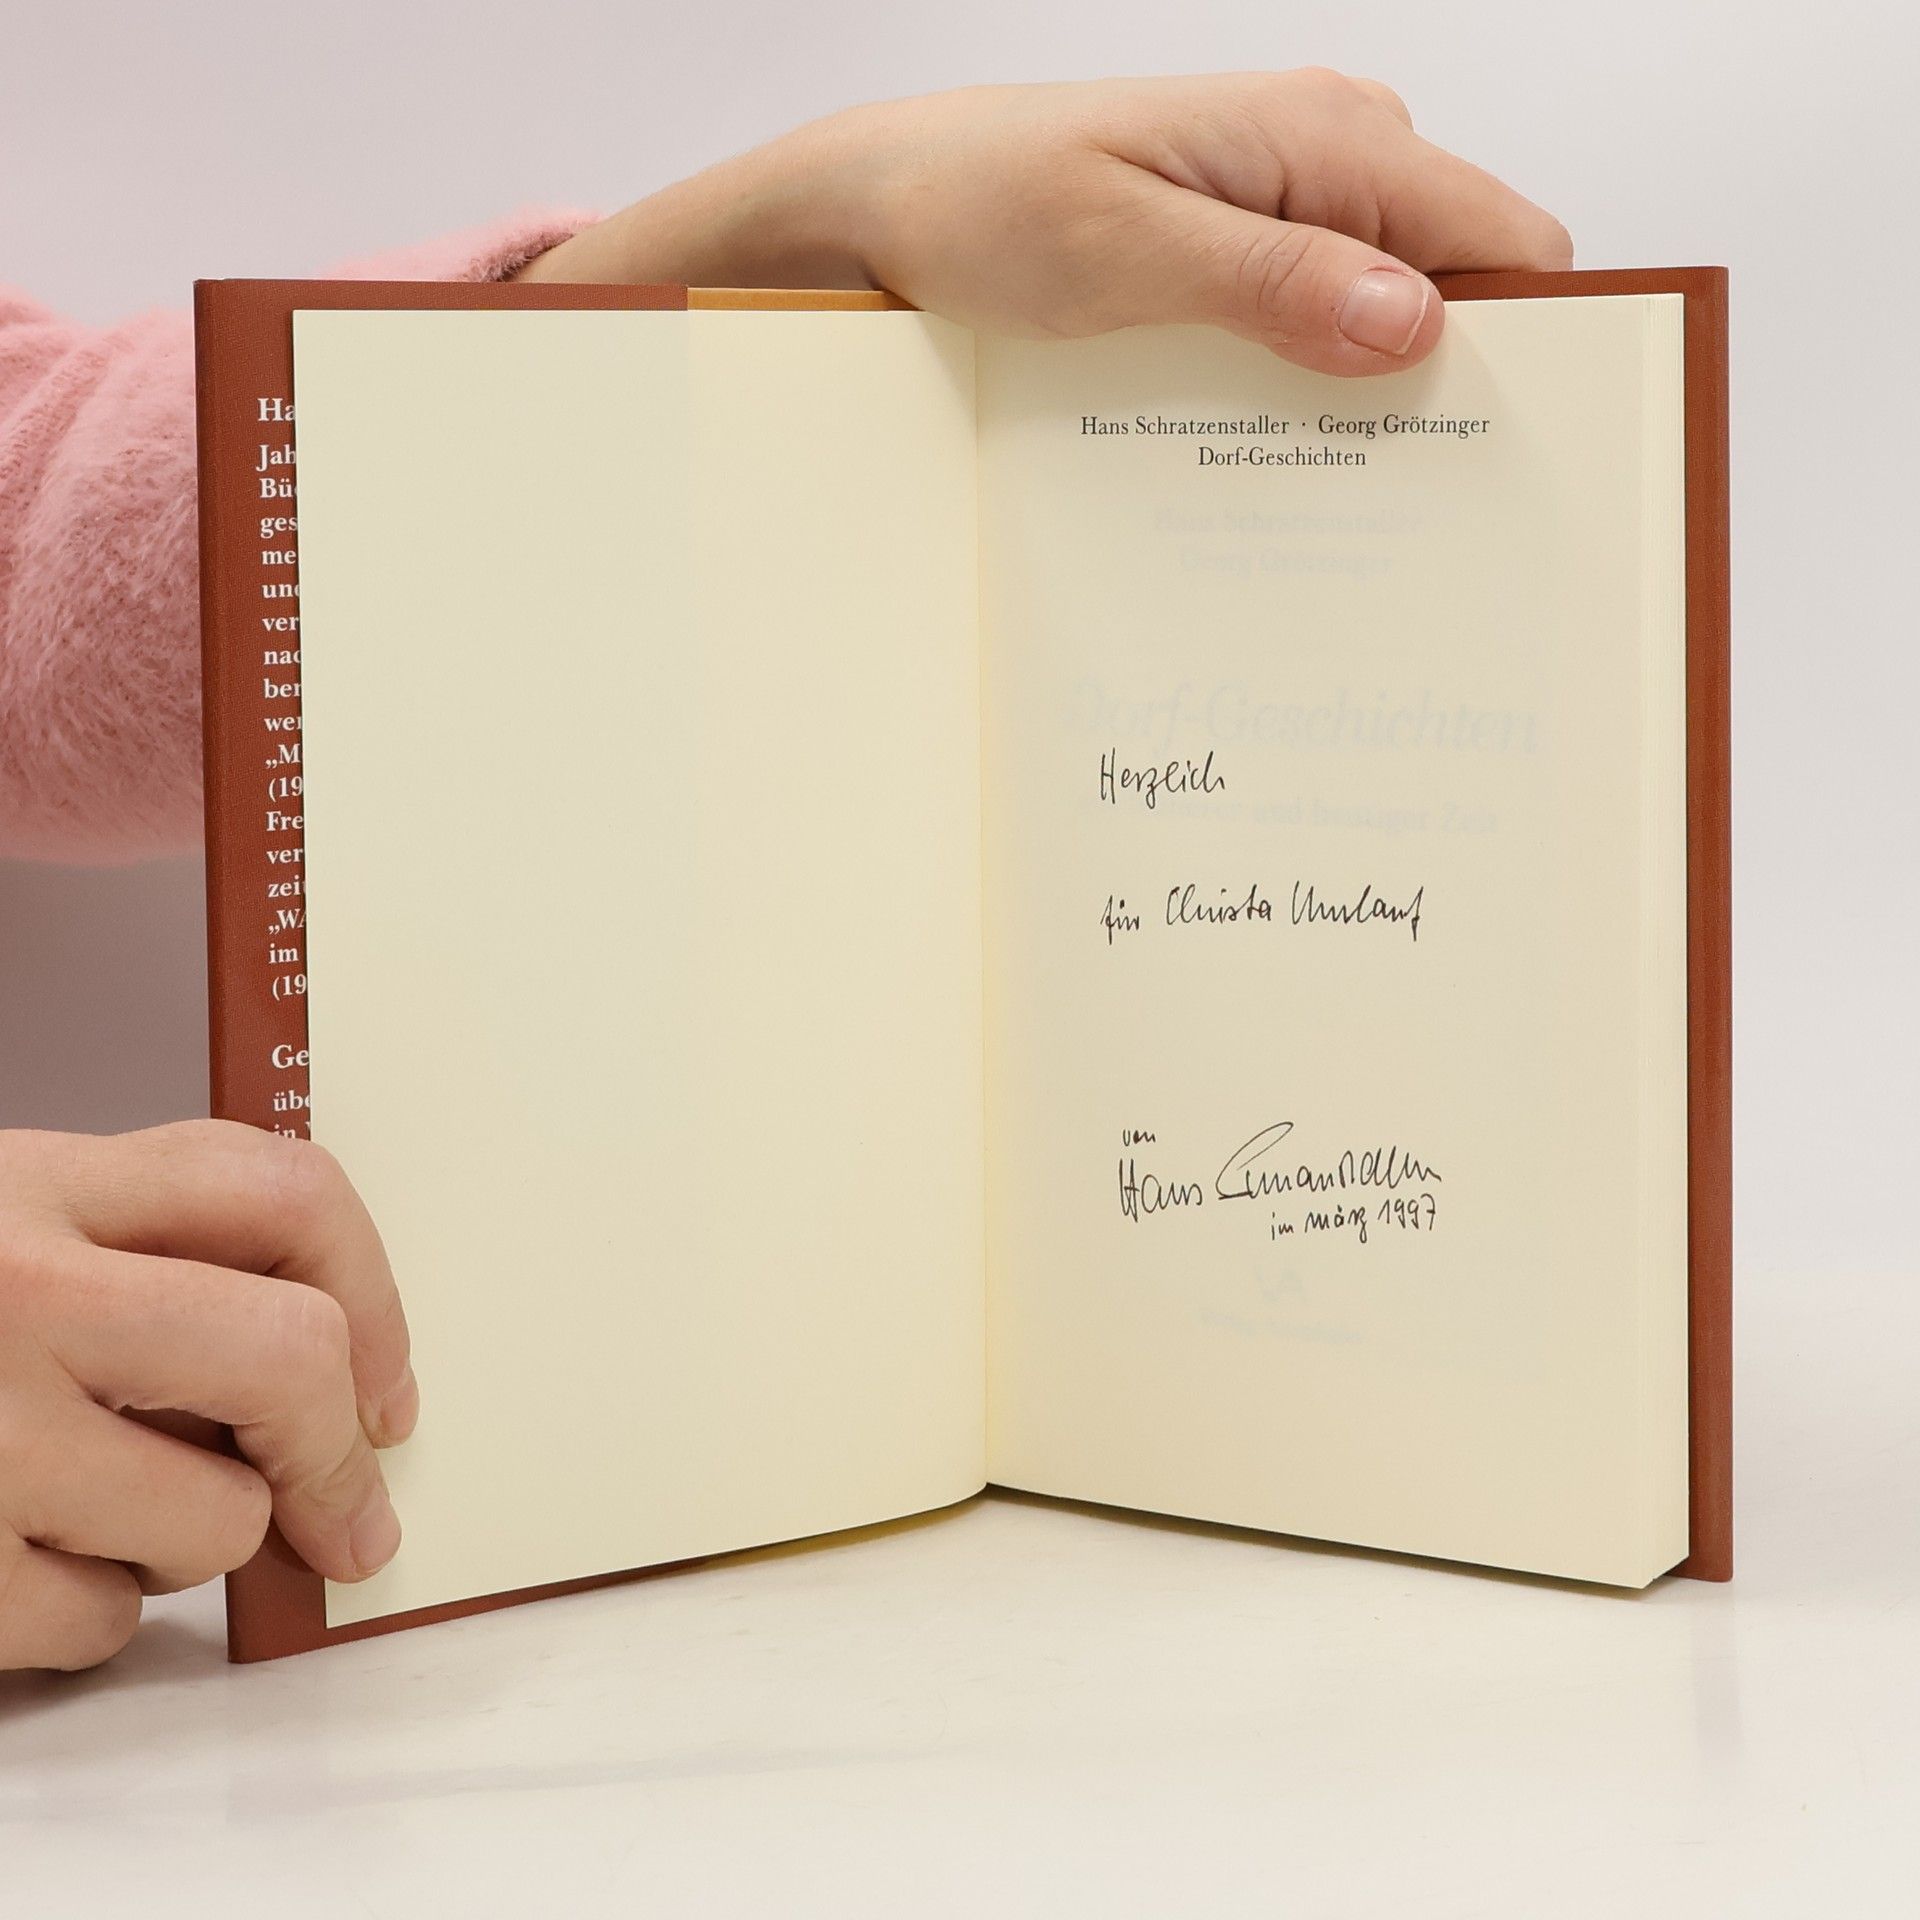 Ha
Jah
Bü
ges
me
und
ver
nac
ber
wer
„M
(19
Fre
ver
zei
„WA
im
(19
Ge
übe
in
Hans Schratzenstaller · Georg Grötzinger
Dorf-Geschichten
Hans Schratzenstaller
Georg Grötzinger
Dorf-Geschichten
und heutiger Zeit
Herzlich
für Christa Umlauf
von
Hans
im März 1997